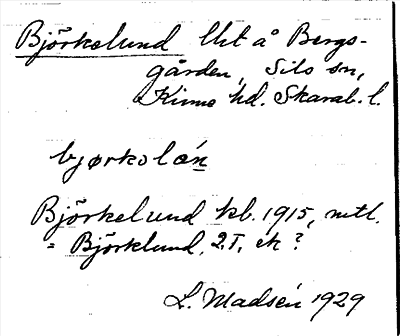 Björkelund lht å Bergs-
gården, Sils sn,
Kinne hd. Skarab. l.
bjørkolǽn
Björkelund kb. 1915, mtl.
= Björklund, 2.T, ek?
L. Madsén 1929